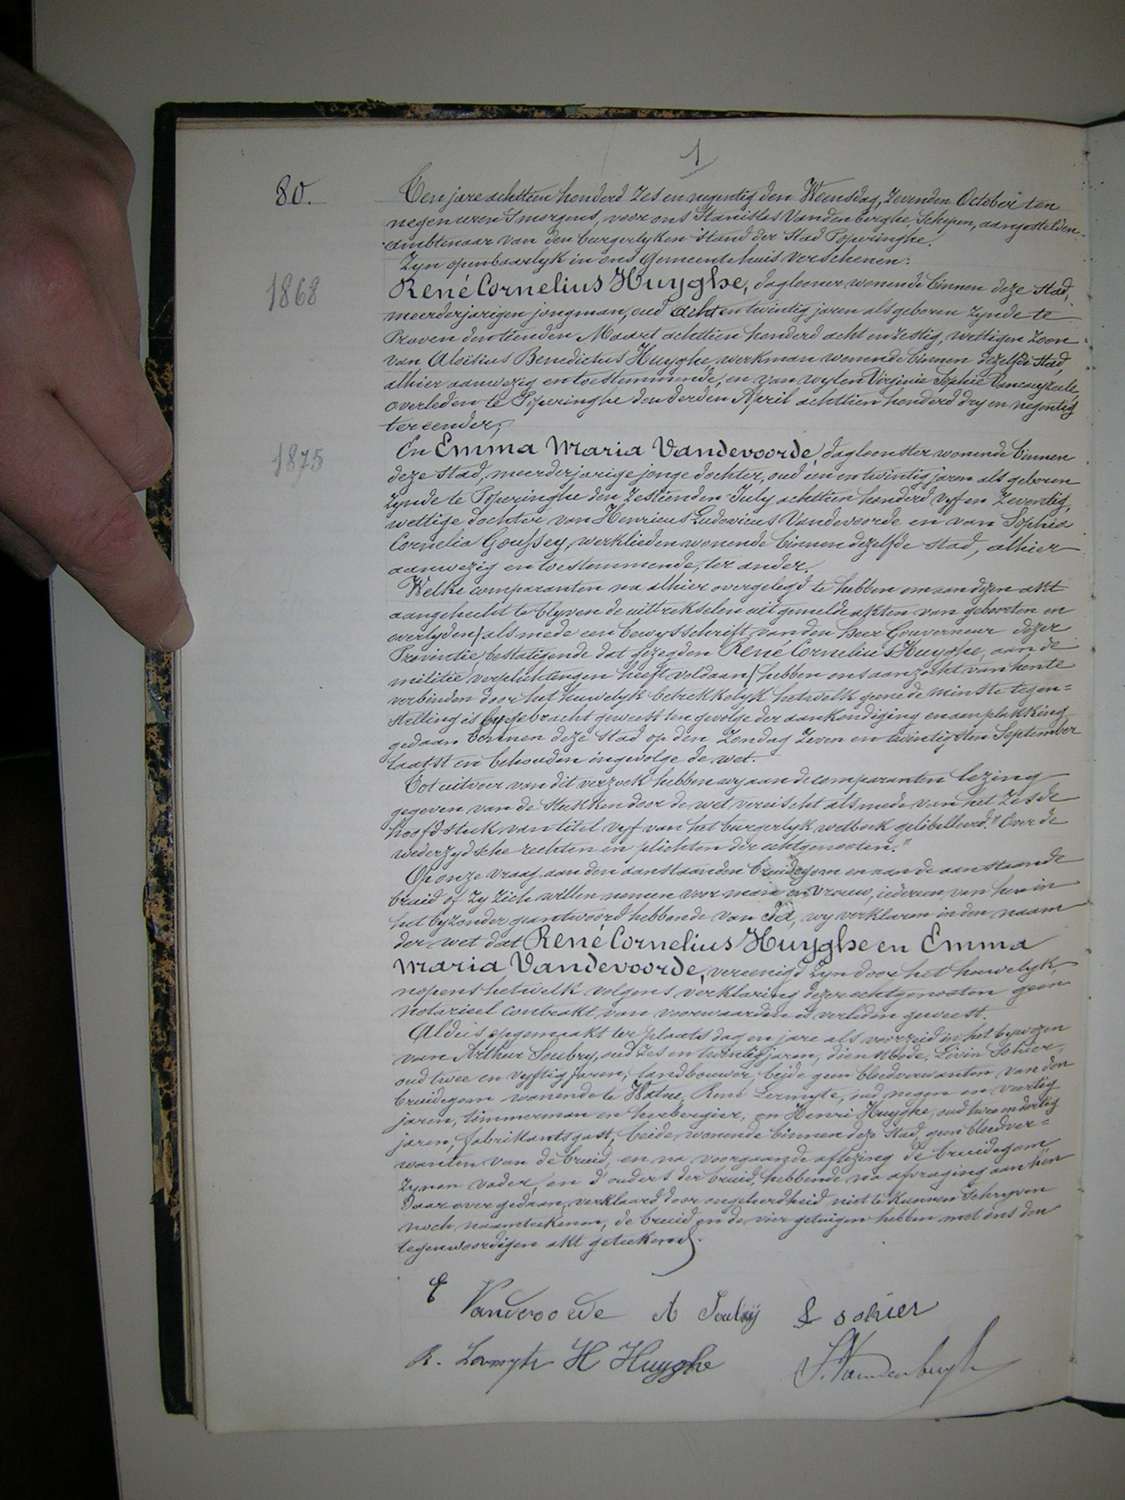 1
80.
Ten jare achttien honderd zes en negentig den Woensdag, zevenden October ten
negen uren smorgens, voor ons Stanislas Vanden Berghe, Schepen, aangestelden
ambtenaar van den burgerlyken stand der Stad Poperinghe.
Zyn openbaarlyk in ons Gemeentehuis verschenen:
1868
René Cornelius Huyghe, daglooner, wonende binnen deze stad,
meerderjarigen jongman, oud acht en twintig jaren als geboren zynde te
Proven den tienden Maart achttien honderd acht en zestig, wettigen zoon
van Aloïsius Benedictus Huyghe, werkman wonende binnen dezelfde stad,
alhier aanwezig en toestemmende, en van wylen Virginie Sophie
overleden te Poperinghe den derden April achttien honderd dry en negentig
ter eender,
1875
En Emma Maria Vandevoorde, dagloonster wonende binnen
deze stad, meerderjarige jonge dochter, oud een en twintig jaren als geboren
zynde te Poperinghe den zestienden July achttien honderd vyf en zeventig,
wettige dochter van Henricus Ludovicus Vandevoorde en van Sophia
Cornelia Goussey, werklieden wonende binnen dezelfde stad, alhier
aanwezig en toestemmende, ter ander.
Welke comparanten na alhier overgelegd te hebben om aan dezen akt
aangehecht te blyven de uittrekselen uit gemelde akten van geboorten en
overlyden, als mede een bewysschrift van den heer Gouverneur dezer
Provintie bestatigende dat gezegden René Cornelius Huyghe, aan de
militie verplichtingen heeft voldaan, hebben ons aanzocht van hunte
verbinden door het huwelyk betrekkelyk hetwelk geene de minste tegen=
stelling is bygebracht geweest ten gevolge der aankondiging en aanplakking
gedaan binnen deze stad op den Zondag zeven en twintigsten September
laatst en behouden ingevolge de wet.
Tot uitvoer van dit verzoek hebben wy aan de comparanten lezing
gegeven van de stukken door de wet vereischt als mede van het zesde
hoofdstuk van titel vyf van het burgerlyk wetboek gelibelleerd "Over de
wederzydsche rechten en plichten der echtgenooten."
Op onze vraag aan den aanstaanden bruidegom en aan de aanstaande
bruid of zy zich willen nemen voor man en vrouw, iedereen van hun in
het byzonder geantwoord hebbende van Ja, wy verklaren in den naam
der wet dat René Cornelius Huyghe en Emma
Maria Vandevoorde, vereenigd zyn door het houwelyk,
nopens hetwelk volgens verklaring dezer echtgenooten geen
notarieel contrakt van voorwaarden is verleden geweest.
Aldus opgemaakt ter plaats dag en jare als voorzeid in het bywezen
van Arthur Soubry, oud zes en twintig jaren, dienstbode, Livin Sohier,
oud twee en vyftig jaren, landbouwer, beide geen bloedverwanten van den
bruidegom wonende te Watou, René Lermyte, oud negen en veertig
jaren, timmerman en herbergier, en Henri Huyghe, oud twee en dertig
jaren, fabrikantsgast, beide wonende binnen deze stad, geen bloedver=
wanten van de bruid, en na voorgaande aflezing de bruidegom
zynen vader, en d'ouders der bruid, hebbende na afvraging aan hen
daar over gedaan, verklaard door ongeleerdheid niet te kunnen schryven
noch naamteekenen, de bruid en de vier getuigen hebben met ons den
tegenwoordigen akt geteekend.
E Vandevoorde A Soubry L sohier
R. Lermyte H Huyghe S. Vandenberghe